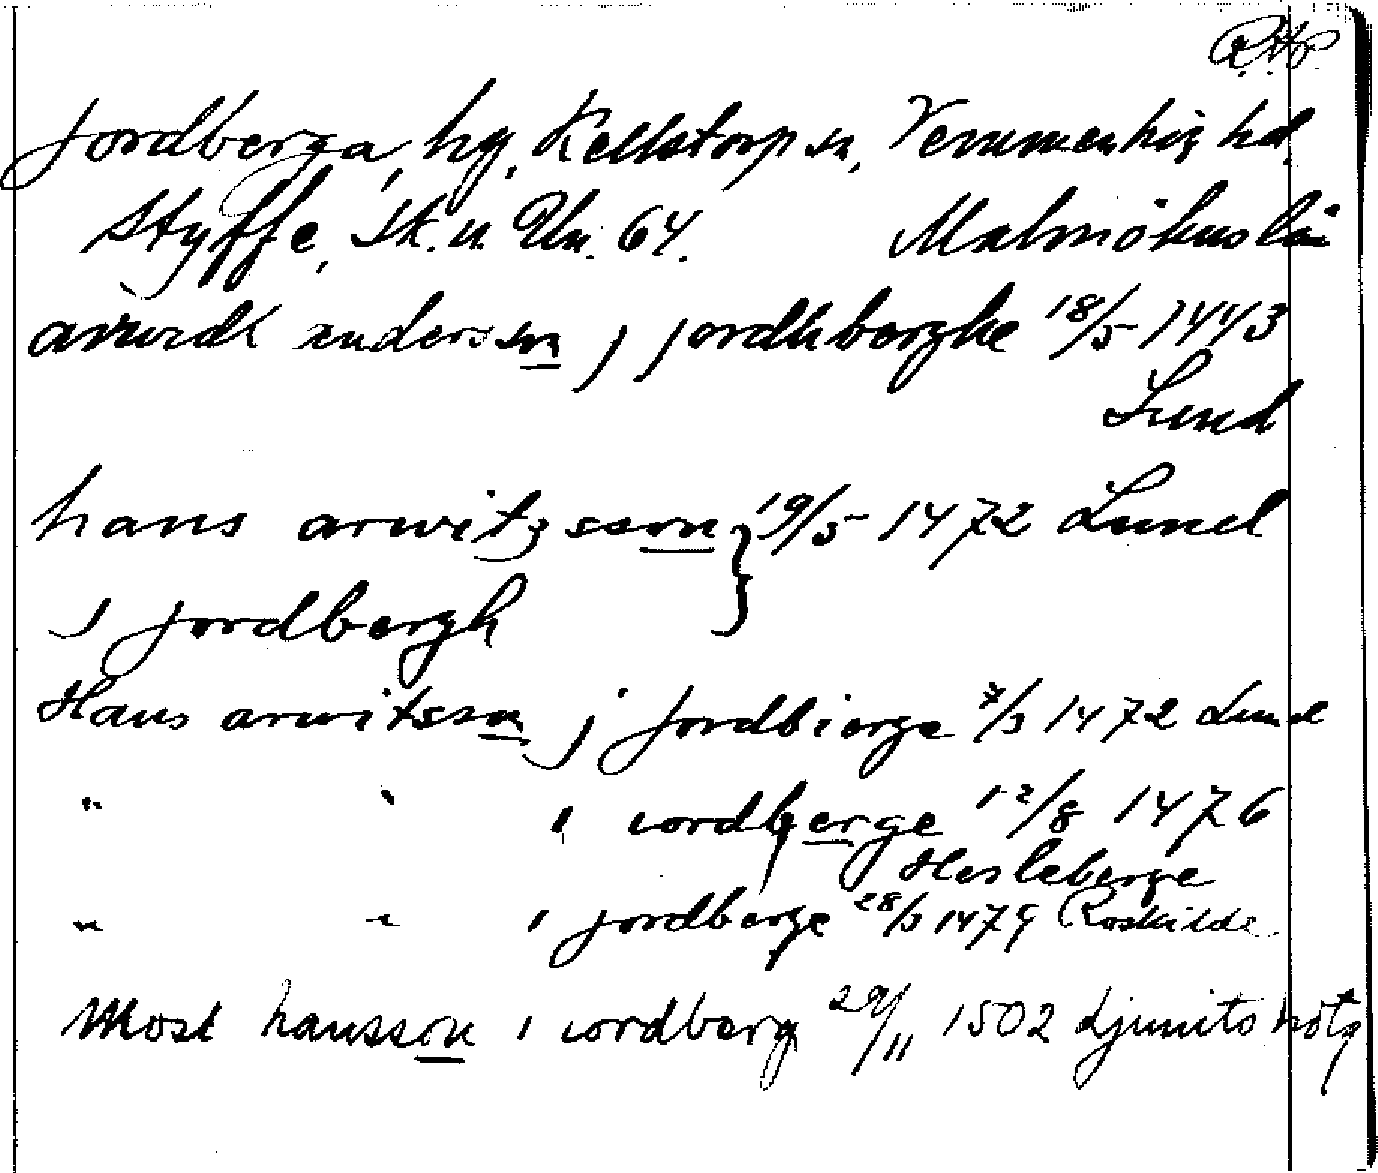 Jordberga, hg, Källstorp sn, Vemmenhög hd,
Styffe, Sk. u. Un. 64. Malmöhus län
arwidt anderssøn j jordhberghe 18/5 1443
Lund
hans arwitzsson } 19/5 1472 Lund
j jordbergh
Hans arwitsson j Jordbierge 7/3 1472 Lund
" " i iordberge 12/8 1476
Hesleberge
" " i jordberge 28/3 1479 Roskilde
hansson i iordberg 29/11 1502